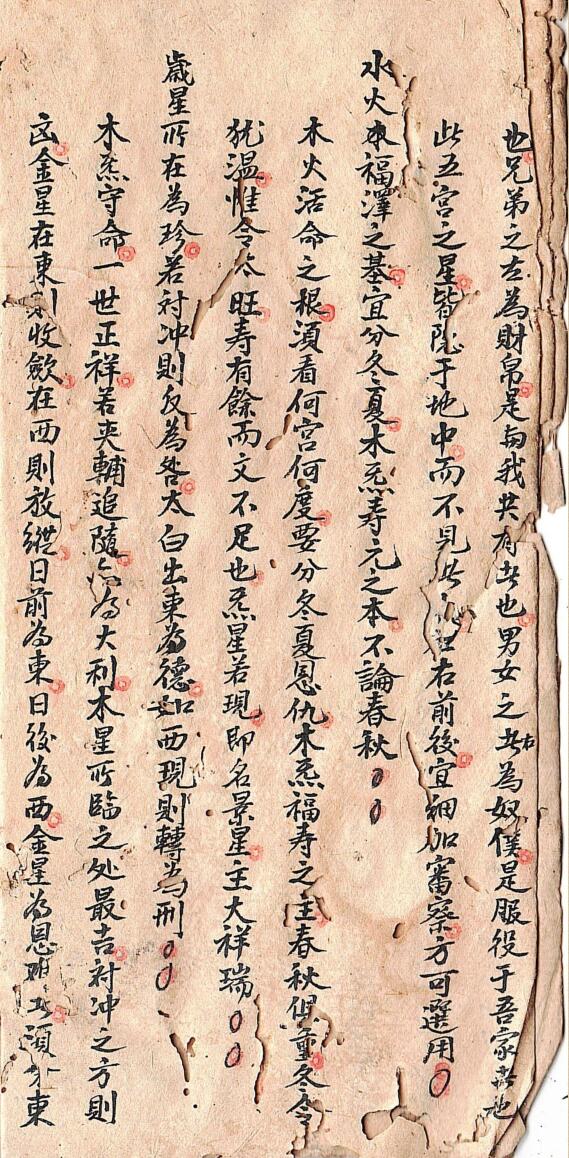 也兄弟之左為財帛是與我共有者也男女之右為奴僕是服役于吾家者也
此五宮之星皆隴于地中而不見此右前後宜細加審察方可選用
水火本福澤之基宜分冬夏木炁寿元之本不論春秋
木火活命之根須看何宮何度要分冬夏恩仇木炁福寿之主春秋俱重冬令
犹溫惟令太旺寿有餘而文不足也炁星若現即名景星主大祥瑞
歲星所在為珍若对冲則反為咎太白出東為德如西現則轉為刑
木炁守命一世正祥若夾輔追隨亦為大利木星所臨之处最吉对冲之方則
凶金星在東則收斂在西則放縱日前為東日後為西金星為恩須分東